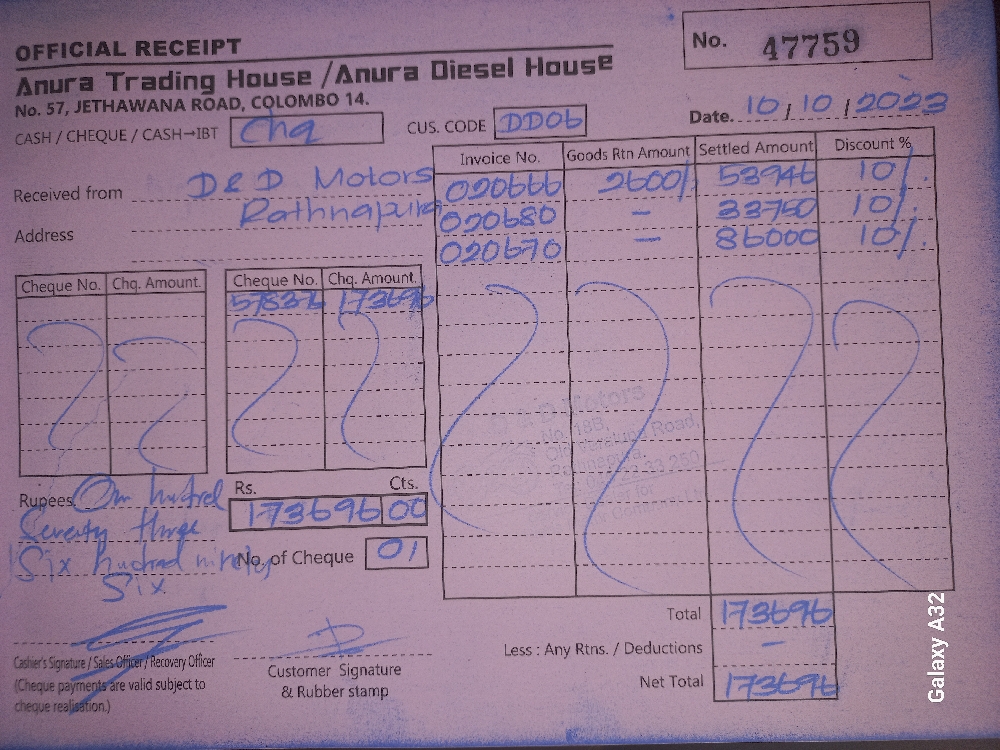 OFFICIAL RECEIPT
No. 47759
Anura Trading House / Anura Diesel House
No. 57, JETHAWANA ROAD, COLOMBO 14.
Date. 10/10/2023
CASH / CHEQUE / CASH→IBT Chq
CUS. CODE DD06
Received from D & D Motors
Rathnapura
Address
Invoice No. Goods Rtn Amount Settled Amount Discount %
020666 2600/- 53946 10%.
020680 - 33750 10%.
020670 - 86000 10%.
Cheque No. Chq. Amount. Cheque No. Chq. Amount.
578376 173696
D Motors
No. 18B,
Road,
Rupees One hundred
Seventy three
Six hundred ninety
Six
Rs. Cts.
173696 00
No. of Cheque 01
Total 173696
Less : Any Rtns. / Deductions -
Net Total 173696
Cashier's Signature / Sales Officer / Recovery Officer
(Cheque payments are valid subject to
cheque realisation.)
Customer Signature
& Rubber stamp
Galaxy A32